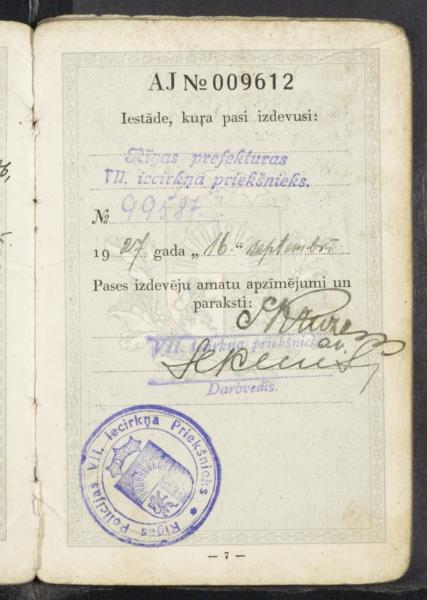 AJ № 009612
Iestāde, kuŗa pasi izdevusi:
Rīgas prefekturas
VII. iecirkņa priekšnieks.
№ 99587
1927 gada „16.“ septembrī
Pases izdevēju amatu apzīmējumi un
paraksti:
VII. iecirkņa priekšnieka
Darbvedis.
Rīgas Policijas VII. Iecirkņa Priekšnieks
— 7 —